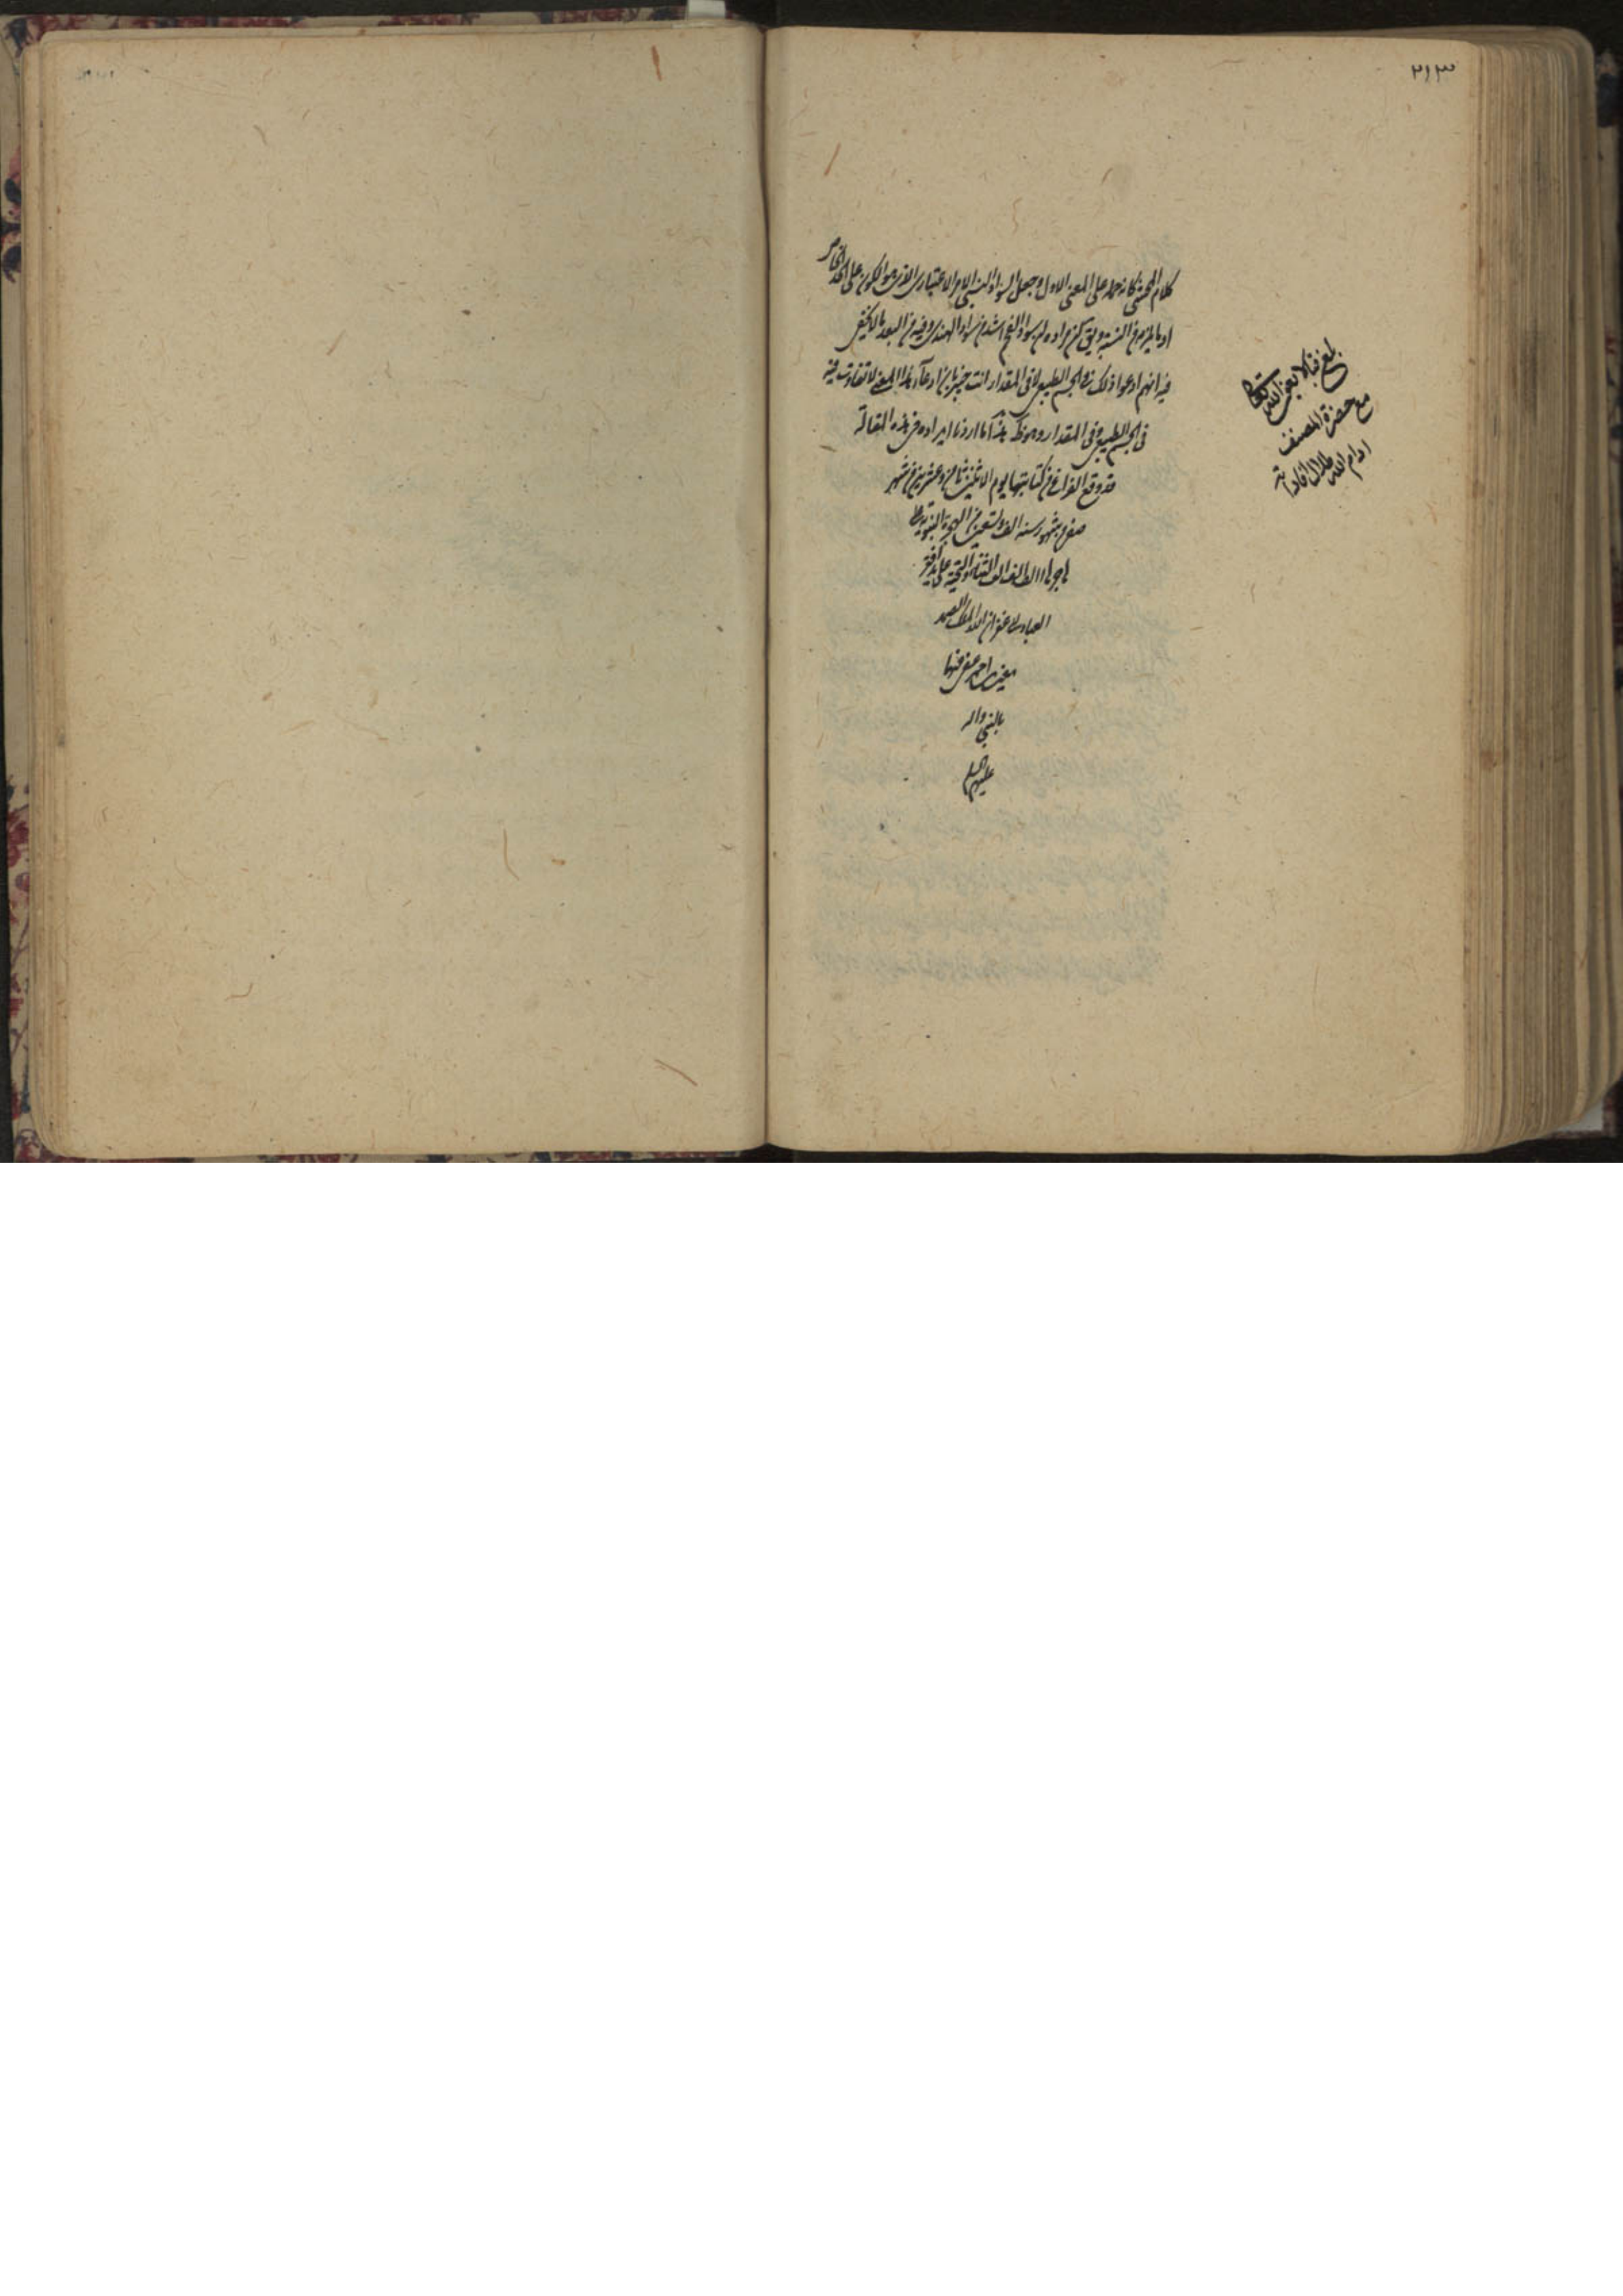 ٢١٣
كلام المحشى كانه حمله على المعنى الاول وجعل السواد النسبى الامر الاعتبارى الذى هو الكون على الحد الخاص
او ما يلزمه من النسبة ويق كس مراده ان سواد الفحم اشد من سواد الهندى وفيه من البعد ما لا يخفى
فيه انهم ادعوا ذلك فى الجسم الطبيعى لا فى المقدار انت خبير بان ادعآء هذا المعنى لا تفاوت فيه
فى الجسم الطبيعى وفى المقدار وهو ظ هذا ما اردنا ايراده فى هذه المقالة
قد وقع الفراغ من كتابتها يوم الاثنين ثامن وعشرين من شهر
صفر شهور سنه الف وتسعين من الهجرة النبوية على
هاجرها الف الف الثناء والتحية على يد افقر
العباد الى غفران الله الملك الصمد
احمد عفى عنهما
بالنبى واله
عليهم السلم
بلغ قبالا بعون الله تعالى
مع حضرة المصنف
ادام الله ظلال افاداته